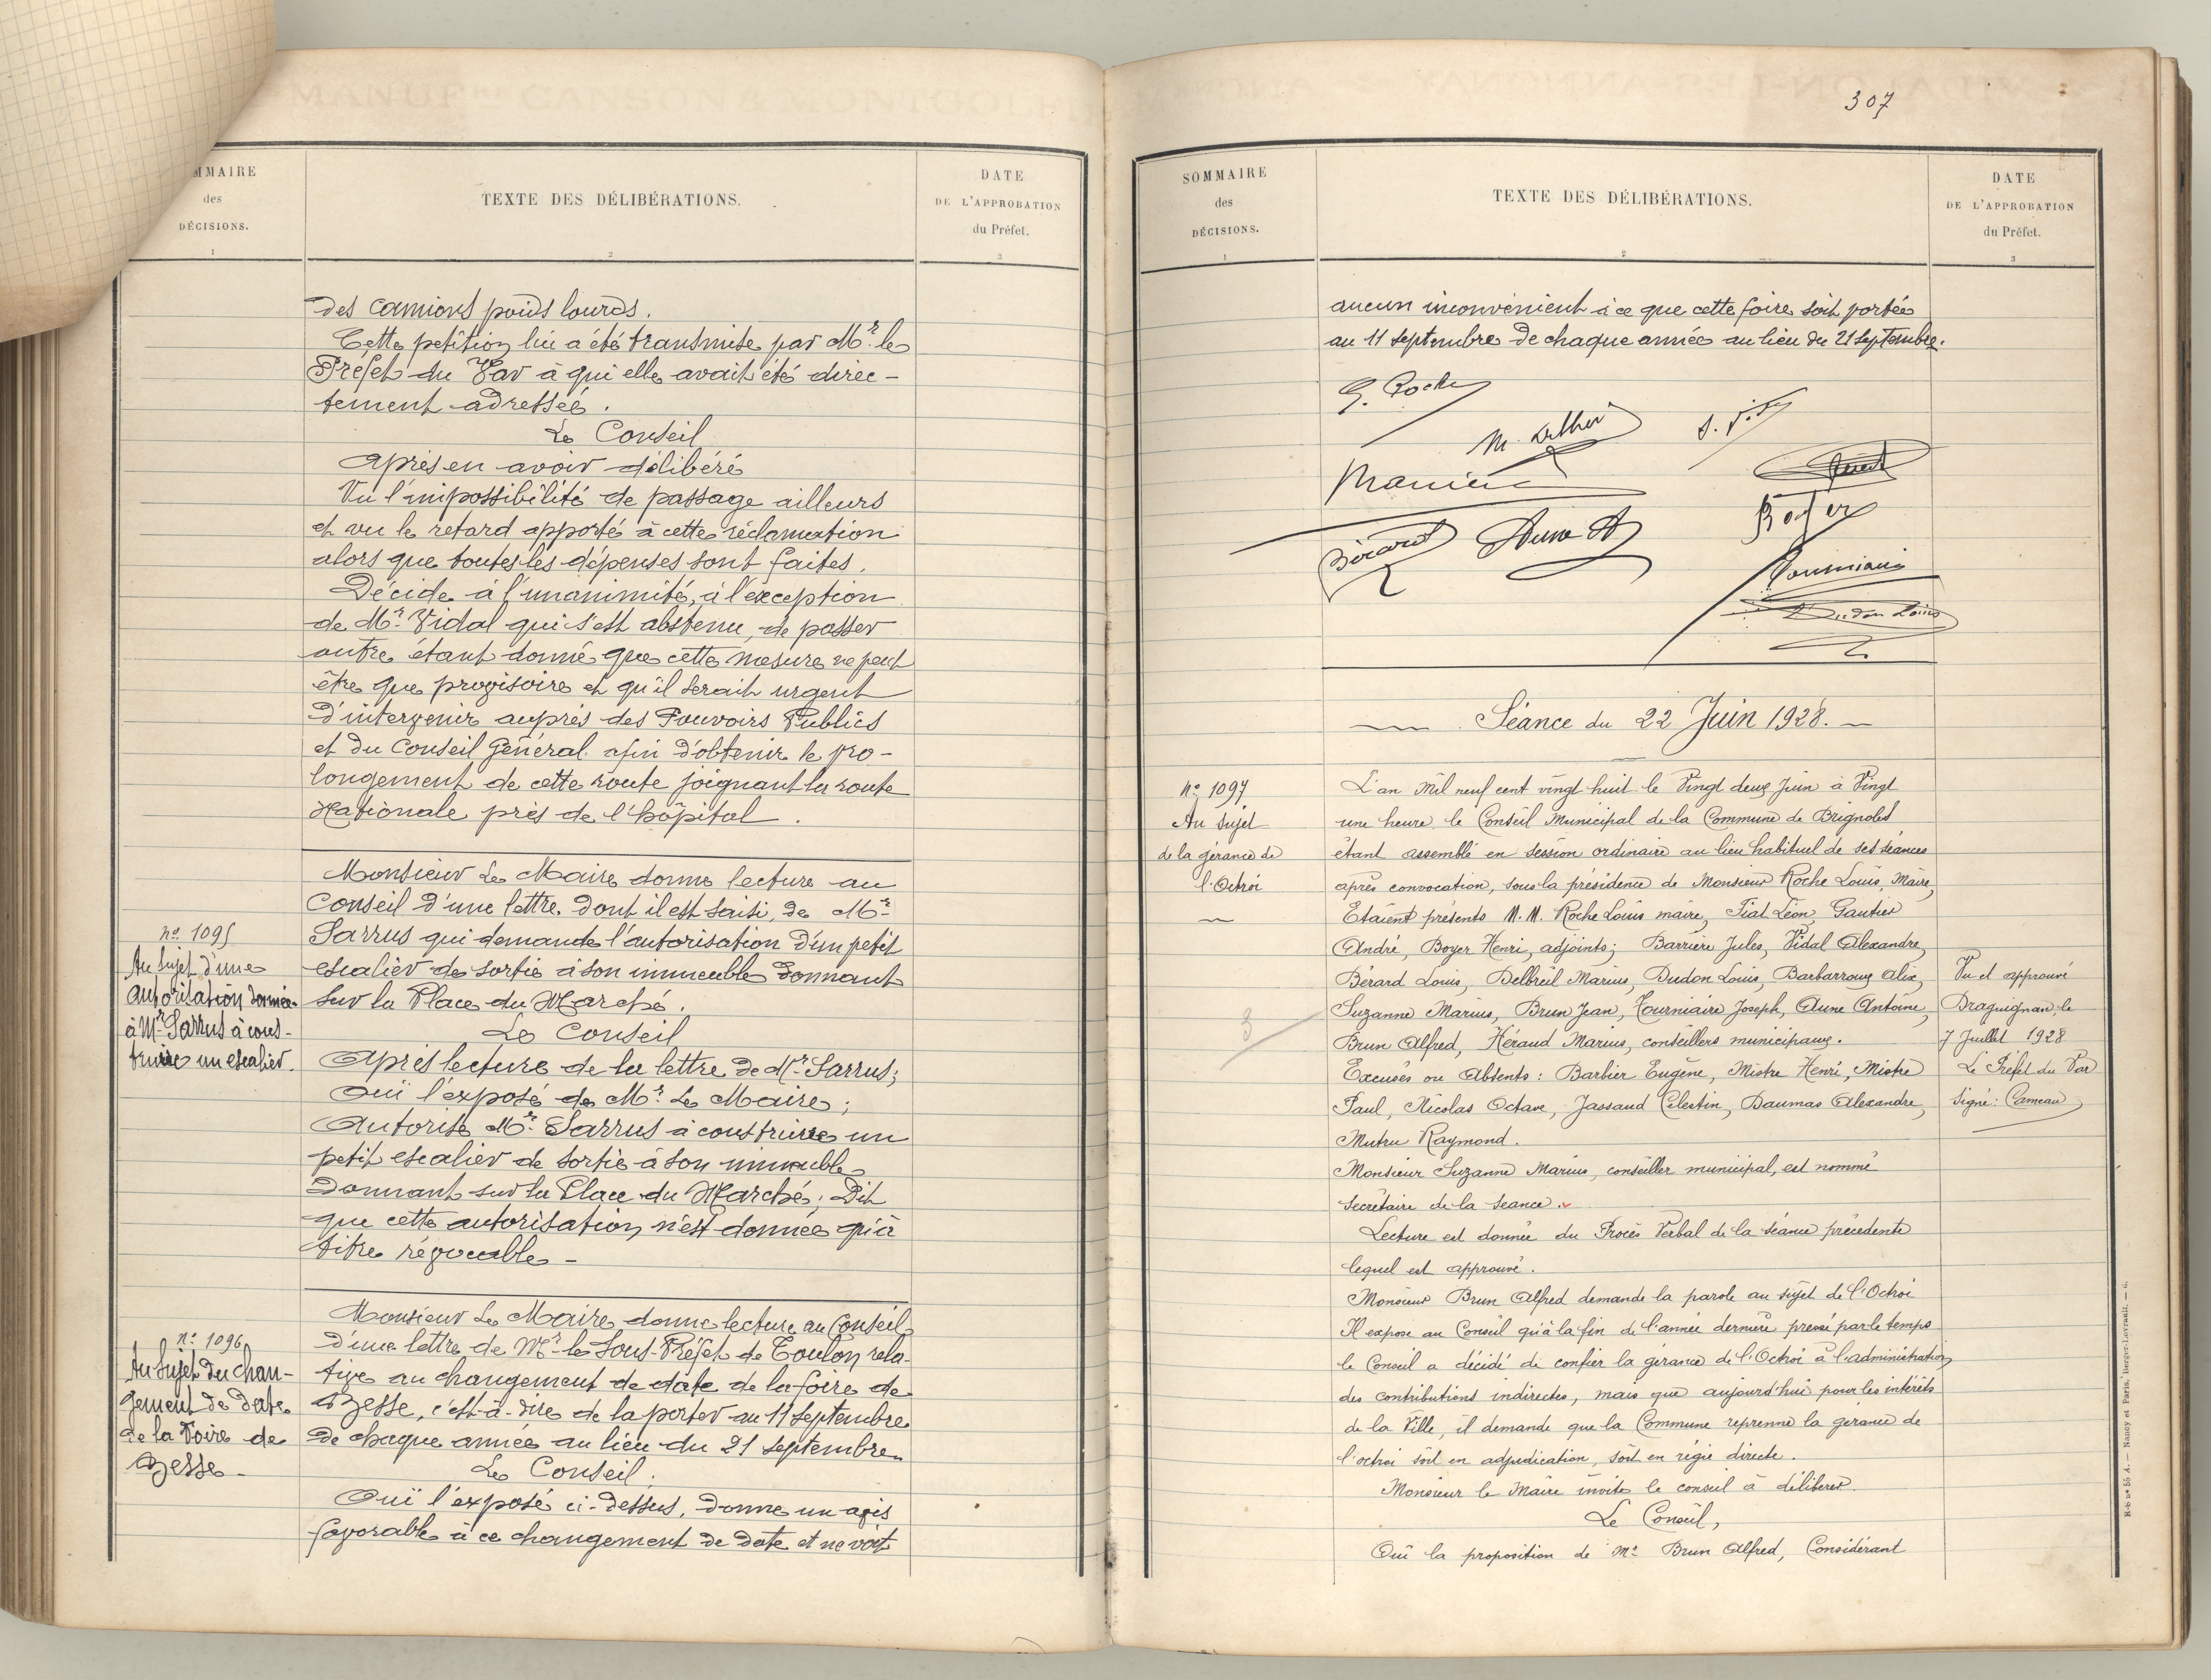 MMAIRE
des
DÉCISIONS.
1
TEXTE DES DÉLIBÉRATIONS.
2
DATE
DE L'APPROBATION
du Préfet.
3
des camions poids lourds.
Cette petition lui a été transmise par Mr. le
Préfet du Var à qui elle avait été direc-
tement adressée.
Le Conseil
Après en avoir délibéré
Vu l'impossibilité de passage ailleurs
et vu le retard apporté à cette réclamation
alors que toutes les dépenses sont faites.
Décide à l'unanimité, à l'exception
de Mr. Vidal qui s'est abstenu, de passer
outre étant donné que cette mesure ne peut
être que provisoire et qu'il serait urgent
d'intervenir auprès des Pouvoirs Publics
et du Conseil Général afin d'obtenir le pro-
longement de cette route joignant la route
Nationale près de l'hôpital.
no. 1095
Au sujet d'une
autorisation donnée
à Mr Sarrus à cons-
truire un escalier.
Monsieur Le Maire donne lecture au
Conseil d'une lettre, dont il est saisi, de Mr.
Sarrus qui demande l'autorisation d'un petit
escalier de sortie à son immeuble donnant
sur la Place du Marché.
Le Conseil
Après lecture de la lettre de Mr. Sarrus;
Ouï l'exposé de Mr. Le Maire;
Autorise Mr. Sarrus à construire un
petit escalier de sortie à son immeuble
donnant sur la Place du Marché; Dit
que cette autorisation n'est donnée qu'à
titre révocable -
no. 1096
Au sujet du chan-
gement de date
de la Foire de
Besse -
Monsieur Le Maire donne lecture au Conseil
d'une lettre de Mr. le Sous-Préfet de Toulon rela-
tive au changement de date de la foire de
Besse, c'est-à-dire de la porter au 11 Septembre
de chaque année au lieu du 21 septembre
Le Conseil.
Ouï l'exposé ci-dessus, donne un avis
favorable à ce changement de date et ne voit
307
SOMMAIRE
des
DÉCISIONS.
1
TEXTE DES DÉLIBÉRATIONS.
2
DATE
DE L'APPROBATION
du Préfet.
3
aucun inconvénient à ce que cette foire soit portée
au 11 septembre de chaque année au lieu du 21 septembre.
Bérard
Aune A
Boyer
Tourniaire
Dudon Louis
Séance du 22 Juin 1928. -
no. 1097
Au sujet
de la gérance de
l'Octroi
3
L'an Mil neuf cent vingt huit le Vingt deux Juin à Vingt
une heure, le Conseil Municipal de la Commune de Brignoles
étant assemblé en session ordinaire au lieu habituel de ses séances
après convocation, sous la présidence de Monsieur Roche Louis, Maire,
Etaient présents M.M. Roche Louis maire, Fiat Léon, Gautier
André, Boyer Henri, adjoints; Barrière Jules, Vidal Alexandre,
Bérard Louis, Delbreil Marius, Dudon Louis, Barbarroux Alix,
Suzanne Marius, Brun Jean, Tourniaire Joseph, Aune Antoine,
Brun Alfred, Héraud Marius, conseillers municipaux.
Excusés ou Absents: Barbier Eugène, Mistre Henri, Mistre
Paul, Nicolas Octave, Jassaud Célestin, Baumas Alexandre,
Mutru Raymond.
Monsieur Suzanne Marius, conseiller municipal, est nommé
secrétaire de la séance.
Lecture est donnée du Procès Verbal de la séance précédente
lequel est approuvé.
Monsieur Brun Alfred demande la parole au sujet de l'Octroi
Il expose au Conseil qu'à la fin de l'année dernière pressé par le temps
le Conseil a décidé de confier la gérance de l'Octroi à l'administration
des contributions indirectes, mais que aujourd'hui pour les intérêts
de la Ville, il demande que la Commune reprenne la gérance de
l'octroi soit en adjudication, soit en régie directe.
Monsieur le Maire invite le conseil à délibérer.
Le Conseil,
Ouï la proposition de Mr. Brun Alfred, Considérant
Vu et approuvé
Draguignan, le
7 Juillet 1928
Le Préfet du Var
Signé: Cameau
Nancy et Paris, Berger-Levrault. — ii.